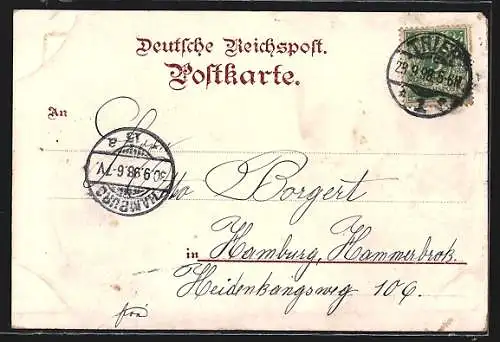 Deutsche Reichspost.
Postkarte.
TRIER
29.9.98.5-6N.
* 1 *
An
* 13 a
30.9.98.6-7V.
HAMBURG
Borgert
in Hamburg, Hammerbrok.
Heidenkangsweg 106.
frei